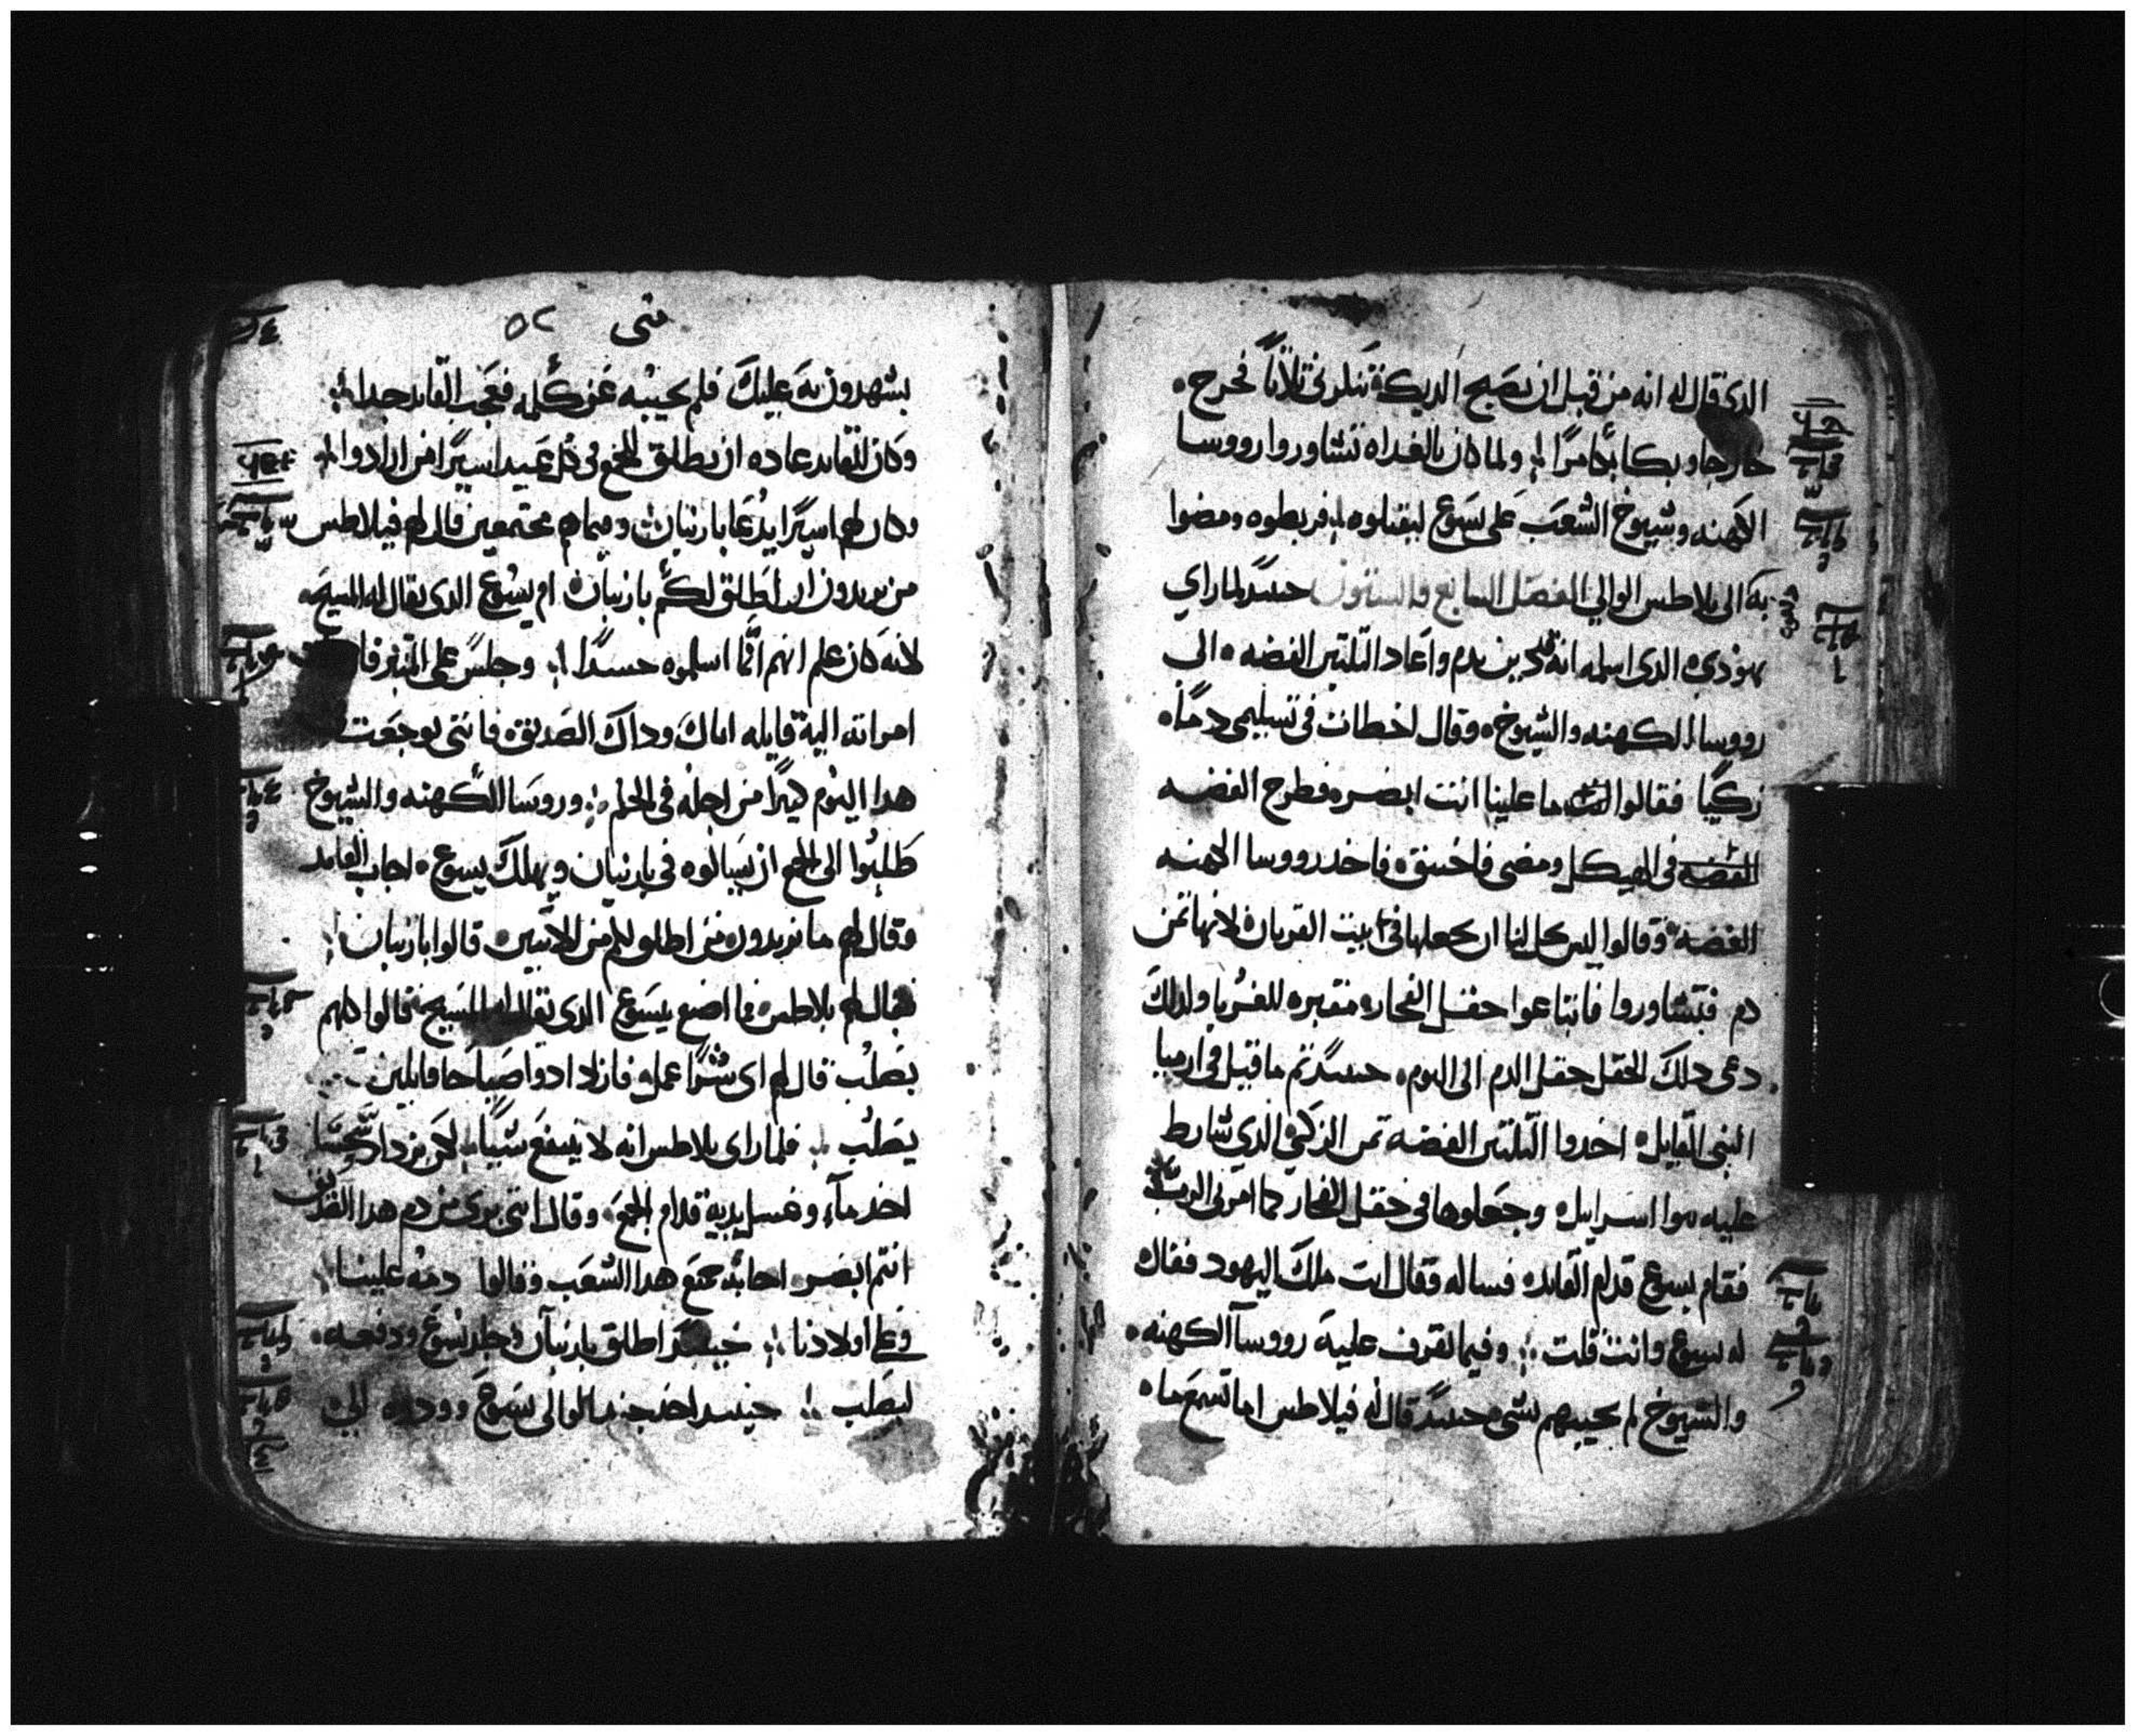 الدى قال له انه من قبل ان يصيح الديك تنكرنى ثلاثاً فخرج
خارجا وبكا بكا مرًا ولما كان بالغداه تشاوروا رووسا
الكهنه وشيوخ الشعب على يسوع ليقتلوه فربطوه ومضوا
به الى بلاطس الوالي الفصل السابع والستون حينيد لما راي
يهودى الدى اسلمه انه قد دين ندم واعاد الثلثين الفضه الى
رووسا الكهنه والشيوخ وقال اخطات في تسليمى دمًا
زكيًا فقالوا ما علينا انت ابصر فطرح الفضه
الفضه في الهيكل ومضى فاختنق فاخد رووسا الكهنه
الفضه وقالوا ليس يحل لنا ان نجعلها في بيت القربان لانها تمن
دم فتشاوروا فابتاعوا حقل الفخار مقبره للغربا ولدلك
دعى دلك الحقل حقل الدم الى اليوم حينيد تم ما قيل في ارميا
النبى القايل اخدوا الثلثين الفضه تمن الزكى الدي شارط
عليه بنوا اسراييل وجعلوها في حقل الفخار كما امرنى الرب
فقام يسوع قدام القايد فساله وقال انت ملك اليهود فقال
له يسوع وانت قلت وفيما تقرف عليه رووسا الكهنه
والشيوخ لم يجيبهم بشى حينيد قال له فيلاطس اما تسمع ما
متى ٥٢
يشهدون به عليك فلم يجيبه عن كلمه فعجب القايد جدا
وكان للقايد عاده ان يطلق للجمع في كل عيد اسيرًا من ارادوا
وكان لهم اسيرًا يدعا بارنبان وفيما هم مجتمعين قال لهم فيلاطس
من تريدون ان اطلق لكم بارنبان ام يسوع الدى يقال له المسيح
لانه كان علم انهم انما اسلموه حسدًا وجلس على المنبر
امراته اليه قايله اياك وداك الصديق فانني توجعت
هدا اليوم كثيرًا من اجله في الحلم وروسا الكهنه والشيوخ
طلبوا الى الجمع ان يسالوه في بارنبان ويهلك يسوع اجاب القايد
وقال لهم ما تريدون من اطلق لكم من الاثنين قالوا بارنبان
فقال لهم بلاطس فما اصنع بيسوع الدي يقال له المسيح قالوا كلهم
يصلب قال لهم اى شرًا عمل فازدادوا صياحا قايلين
يصلب فلما راى بلاطس انه لا ينفع شيًا لكن يزداد سجسًا
اخد مآء وغسل يديه قدام الجمع وقال انى برى من دم هدا الصديق
انتم ابصر اجابه جمع هدا الشعب وقالوا دمه علينا
وعلى اولادنا حينيد اطلق بارنبان وجلد يسوع ودفعه
ليصلب حينيد اخد جند الوالى يسوع